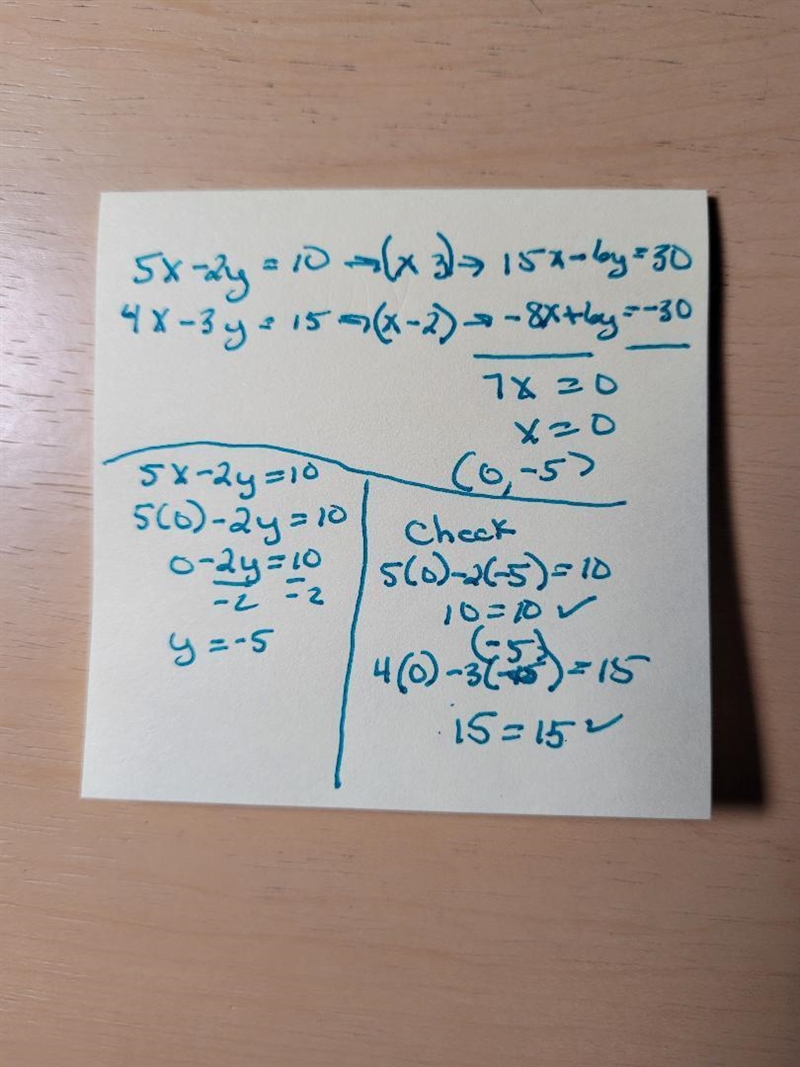 5x-2y = 10 → (x 3) → 15x-6y=30
4x-3y = 15 → (x-2) → -8x+6y=-30
7x = 0
x = 0
(0,-5)
5x-2y=10
5(0)-2y=10
0-2y=10
-2 -2
y = -5
Check
5(0)-2(-5)=10
10=10 ✓
(-5)
4(0)-3( )=15
15=15 ✓